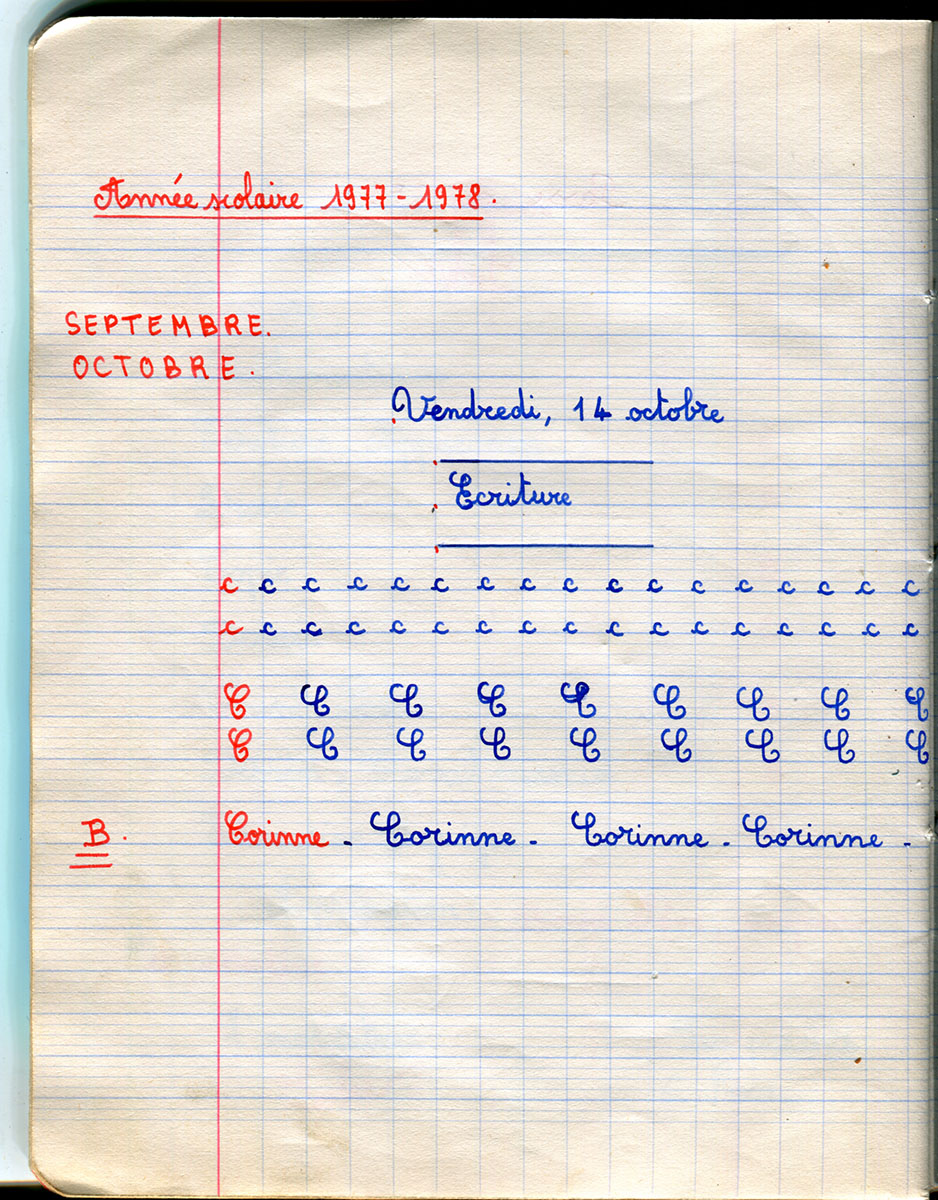 Année scolaire 1977-1978.
SEPTEMBRE.
OCTOBRE.
Vendredi, 14 octobre
Ecriture
c c c c c c c c c c c c c c c c c
c c c c c c c c c c c c c c c c c
C C C C C C C C C
C C C C C C C C C
B. Corinne - Corinne - Corinne - Corinne -